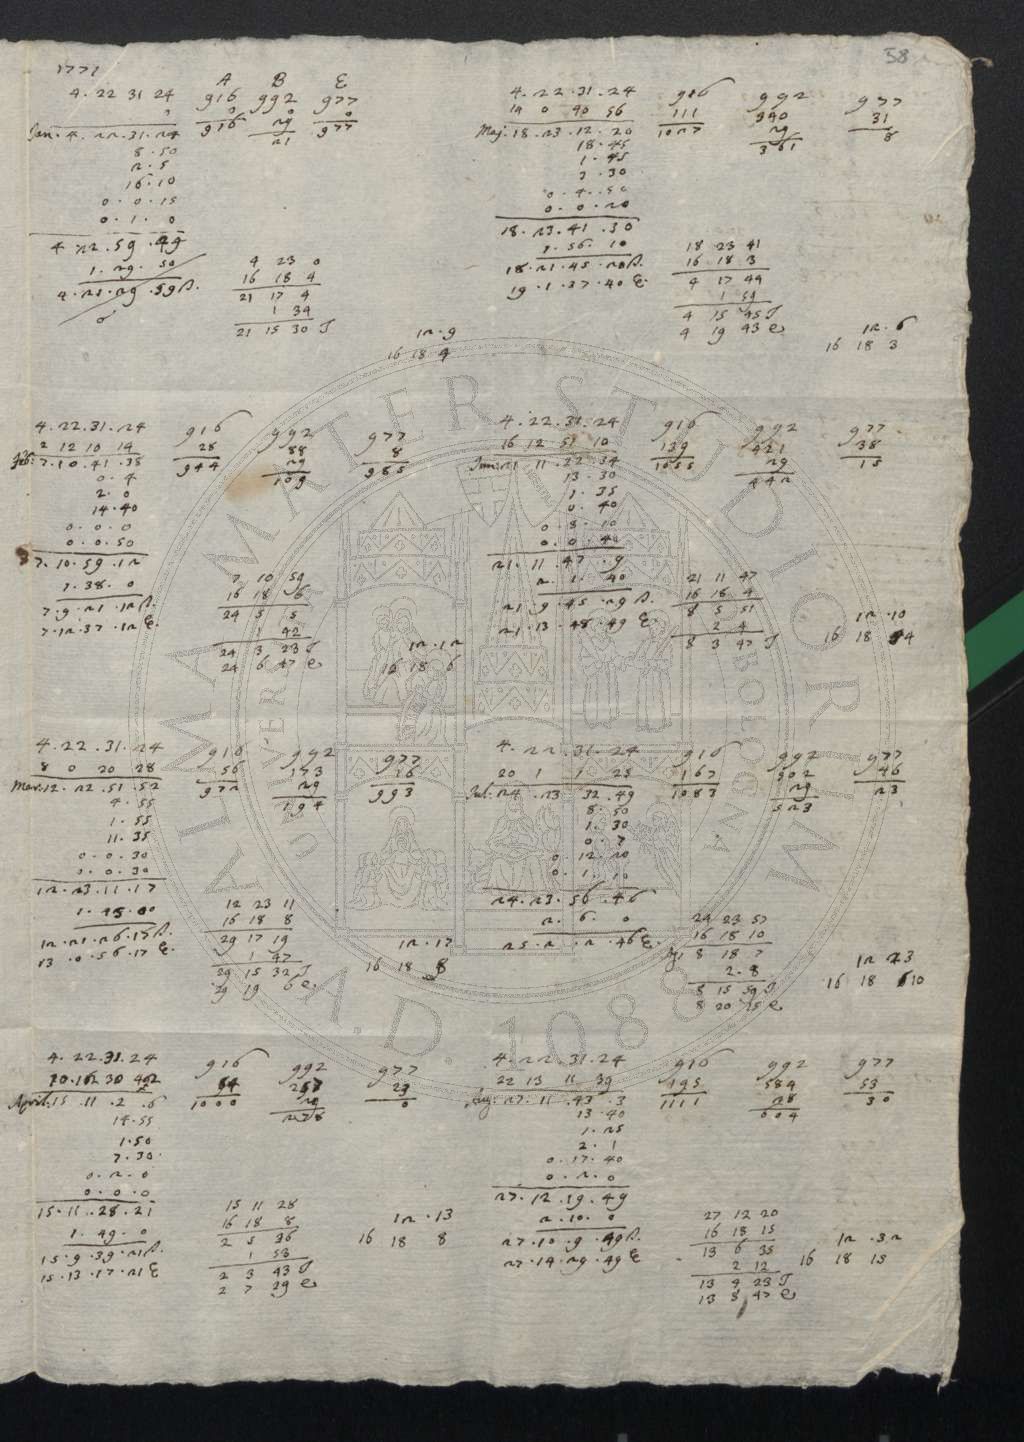 58
1771
A B E
4. 22 31 24 916 992 977
0 0 0 0
Jan. 4. 22. 31. 24 916 29 977
21
8. 50
2. 5
16. 10
0. 0. 15
0. 1. 0
4 22. 59. 49
1. 29. 50
4. 21. 29. 59
4 23 0
16 18 4
21 17 4
1 34
21 15 30 I
12. 9
16 18 4
4. 22. 31. 24 916 992 977
2 12 10 14 28 88 8
Feb. 7. 10. 41. 38 944 29 985
109
0. 4
2. 0
14. 40
0. 0. 0
0. 0. 50
7. 10. 59. 12
1. 38. 0
7. 9. 21. 12
7. 12. 37. 12 E.
7 10 59
16 18 6
24 5 5
1 42
24 3 23 I
24 6 47 e
12. 12
16 18 6
4. 22. 31. 24 916 992 977
8 0 20 28 56 173 16
Mar. 12. 22. 51. 52 972 29 993
194
4. 55
1. 55
11. 35
0. 0. 30
0. 0. 30
12. 23. 11. 17
1. 45. 00
12. 21. 26. 17
13. 0. 56. 17 E.
12 23 11
16 18 8
29 17 19
1 47
29 15 32 I
29 19 6 e.
12. 17
16 18 8
4. 22. 31. 24 916 992 977
84 23
April. 15. 11. 2. 6 1000 29 0
278
14. 55
1. 50
7. 30
0. 2. 0
0. 0. 0
15. 11. 28. 21
1. 49. 0
15. 9. 39. 21
15. 13. 17. 21 E
15 11 28
16 18 8
2 5 36
1 53
2 3 43 I
2 7 29 e
12. 13
16 18 8
4. 22. 31. 24 916 992 977
14 0 40 56 111 340 31
Maj. 18. 23. 12. 20 1027 29 8
361
18. 45
1. 45
3. 30
0. 4. 50
0. 0. 20
18. 23. 41. 30
1. 56. 10
18. 21. 45. 20
19. 1. 37. 40 E.
18 23 41
16 18 3
4 17 44
1 59
4 15 45 I
4 19 43 e
12. 6
16 18 3
4. 22. 31. 24 916 992 977
16 12 51 10 139 421 38
Jun. 21 11. 22. 34 1055 29 15
442
13. 30
1. 35
0. 40
0. 8. 10
0. 0. 40
21. 11. 47. 9
2. 1. 40
21. 9. 45. 29
21. 13. 48. 49 E.
21 11 47
16 18 4
8 5 51
2 4
8 3 47 I
12. 10
16 18 4
4. 22. 31. 24 916 992 977
20 1 1 25 167 502 46
Jul. 24. 23 32. 49 1083 29 23
523
8. 50
1. 30
0. 7
0. 12. 20
0. 1. 10
24. 23. 56. 46
2. 6. 0
25. 2. 2. 46 E.
24 23 57
16 18 10
8 18 7
2. 8
8 15 59 I
8 20 15 e
12 23
16 18 10
4. 22. 31. 24 916 992 977
22 13 11 39 195 584 53
Aug. 27. 11. 43. 3 1111 28 30
604
13. 40
1. 25
2. 1
0. 17. 40
0. 2. 0
27. 12. 19. 49
2. 10. 0
27. 10. 9. 49
27. 14. 29. 49 E
27 12 20
16 18 15
13 6 35
2 12
13 4 23 I
13 8 47 e
12. 32
16 18 15
ALMA MATER STUDIORUM
UNIVERSITÀ DI BOLOGNA
A.D. 1088